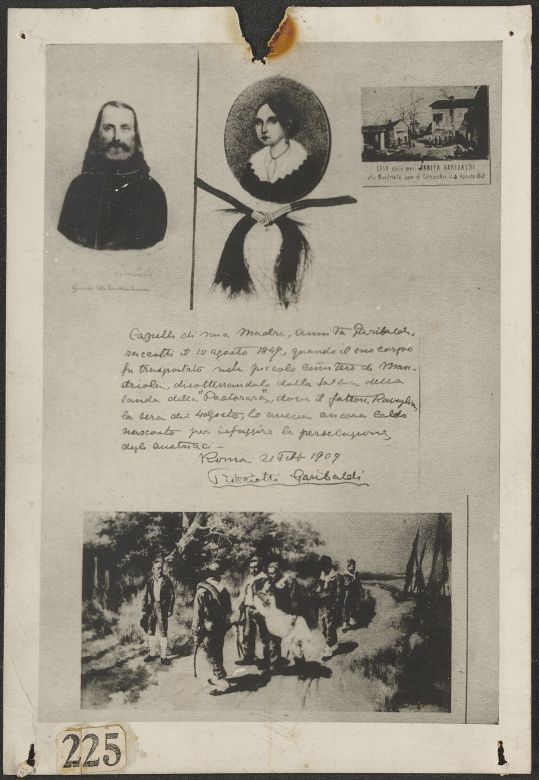 CASA dove morì ANITA GARIBALDI
alla Mandriola com. di Comacchio il 4 Agosto 1849
Capelli di mia Madre, Annita Garibaldi,
raccolti il 10 agosto 1849, quando il suo corpo
fu trasportato nel piccolo cimitero di Man-
driola, disotterrandola dalla sabbia della
landa della "Pastorara", dove il fattore Ravaglia,
la sera del 4 agosto, lo aveva ancora caldo
nascosto per isfuggire la persecuzione
degli austriaci -
Roma 21 Feb 1909
Ricciotti Garibaldi
225